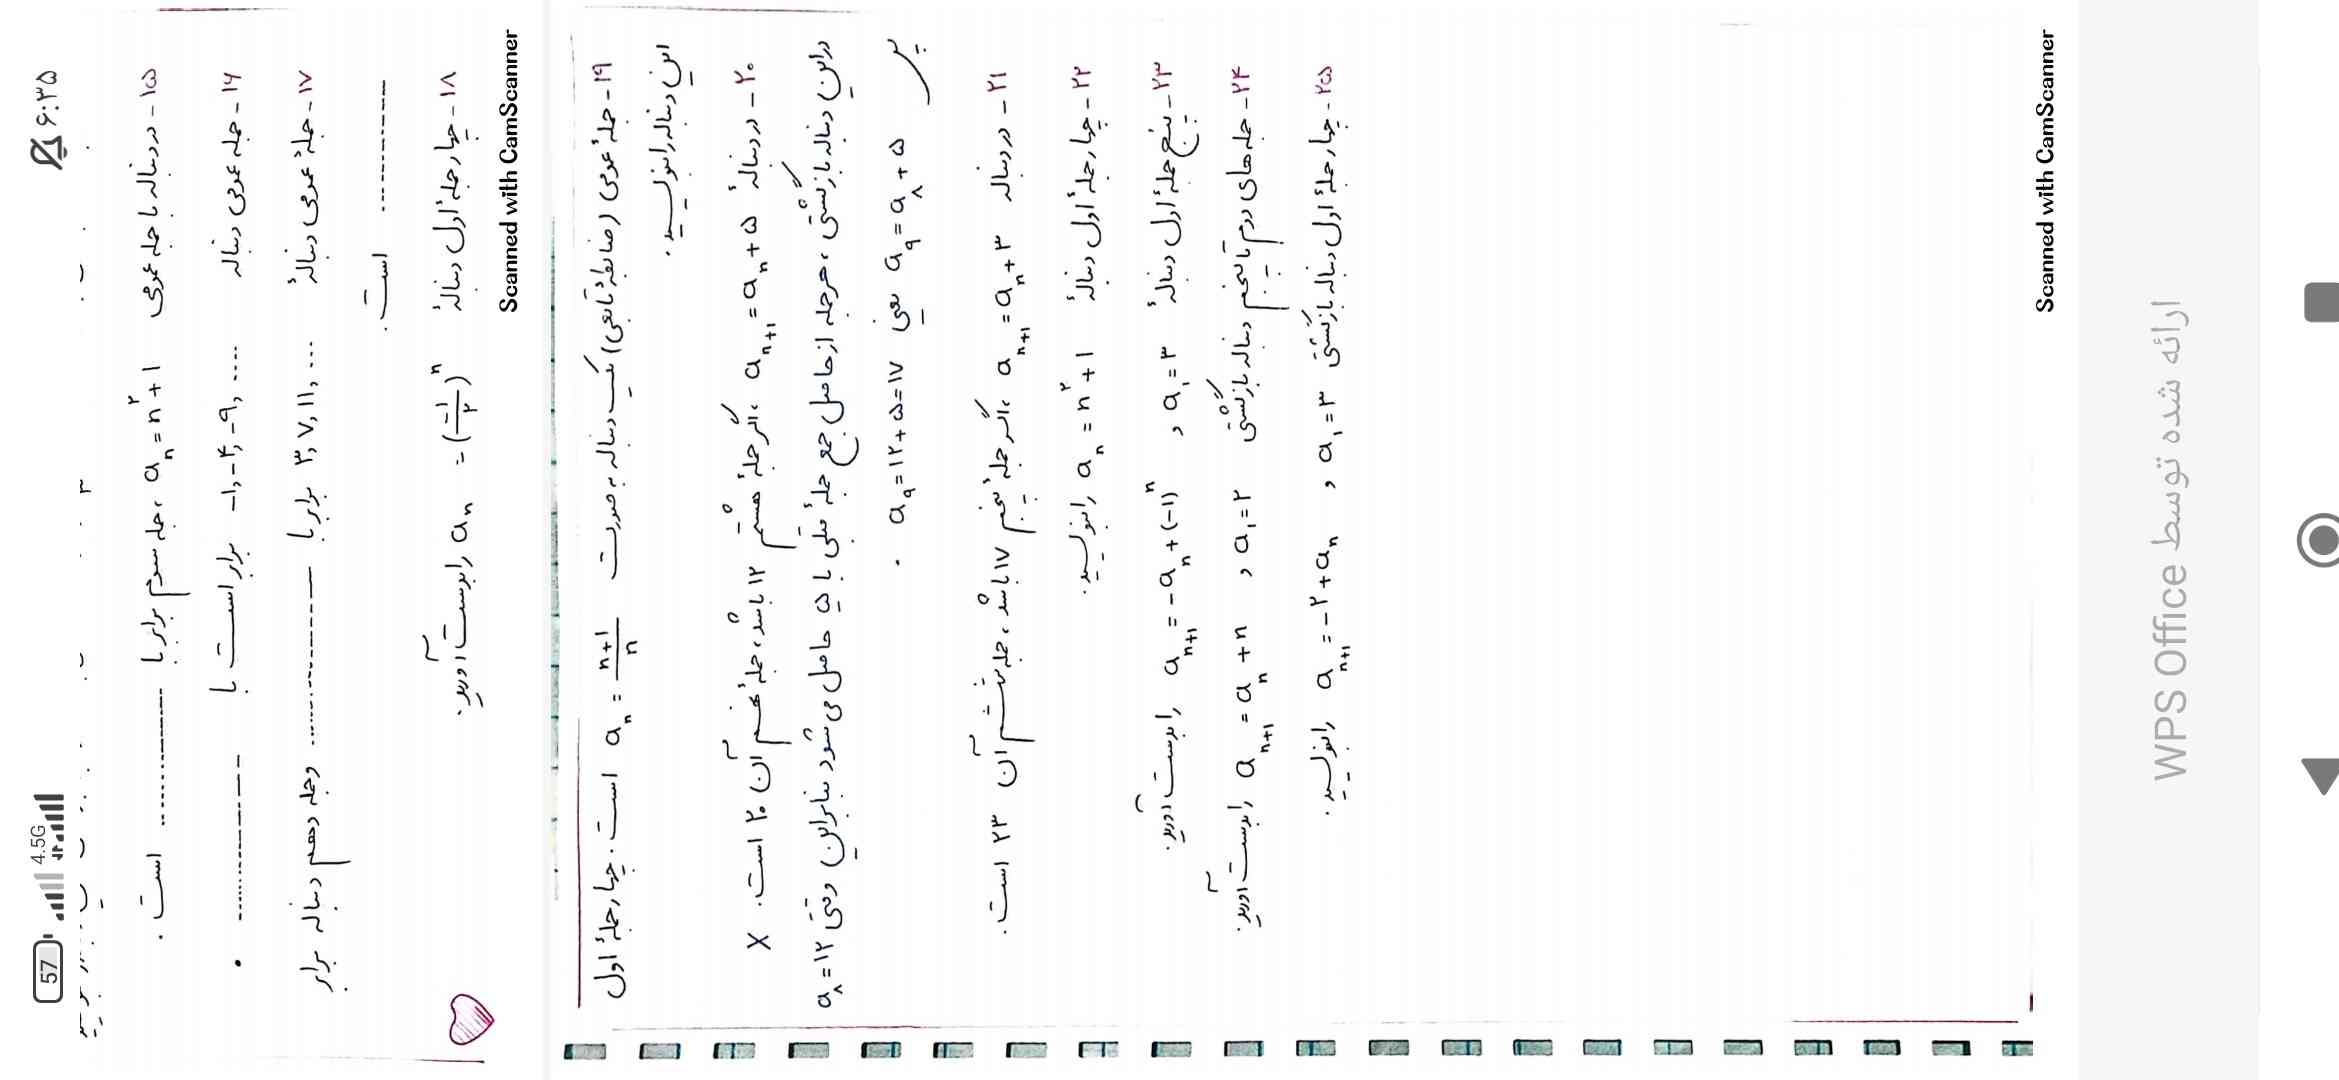 ۶:۳۵
4.5G
57
۱۵- در دنباله با جمله عمومی aₙ = n² + ۱ ، جمله سوم برابر با ............ است .
۱۶- جمله عمومی دنباله ... ,۹- ,۴- ,۱- برابر است با ............ .
۱۷- جملهٔ عمومی دنبالهٔ ... ,۱۱ ,۷ ,۳ برابر با ............ و جمله دهم دنباله برابر
............ است .
۱۸- چهار جملهٔ اول دنبالهٔ aₙ = (-۱/۲)ⁿ را بدست آورید.
Scanned with CamScanner
۱۹- جملهٔ عمومی (ضابطهٔ تابعی) یک دنباله به صورت aₙ = (n+۱)/n است . چهار جملهٔ اول
این دنباله را بنویسید .
۲۰- در دنبالهٔ aₙ₊₁ = aₙ + ۵ ، اگر جملهٔ هشتم ۱۲ باشد ، جملهٔ نهم آن ۲۰ است . X
در این دنباله بازگشتی ، هر جمله از حاصل جمع جملهٔ قبلی با ۵ حاصل می شود بنابراین وقتی a₈ = ۱۲
پس a₉ = a₈ + ۵ یعنی a₉ = ۱۲ + ۵ = ۱۷ .
۲۱- در دنباله aₙ₊₁ = aₙ + ۳ ، اگر جملهٔ پنجم ۱۷ باشد ، جمله ششم آن ۲۳ است .
۲۲- چهار جملهٔ اول دنبالهٔ aₙ = n² + ۱ را بنویسید .
۲۳- پنج جملهٔ اول دنبالهٔ a₁ = ۳ , aₙ₊₁ = -aₙ + (-۱)ⁿ را بدست آورید .
۲۴- جمله های دوم تا پنجم دنباله بازگشتی a₁ = ۲ , aₙ₊₁ = aₙ + n را بدست آورید .
۲۵- چهار جملهٔ اول دنباله بازگشتی a₁ = ۳ , aₙ₊₁ = -۲ + aₙ را بنویسید .
Scanned with CamScanner
ارائه شده توسط WPS Office